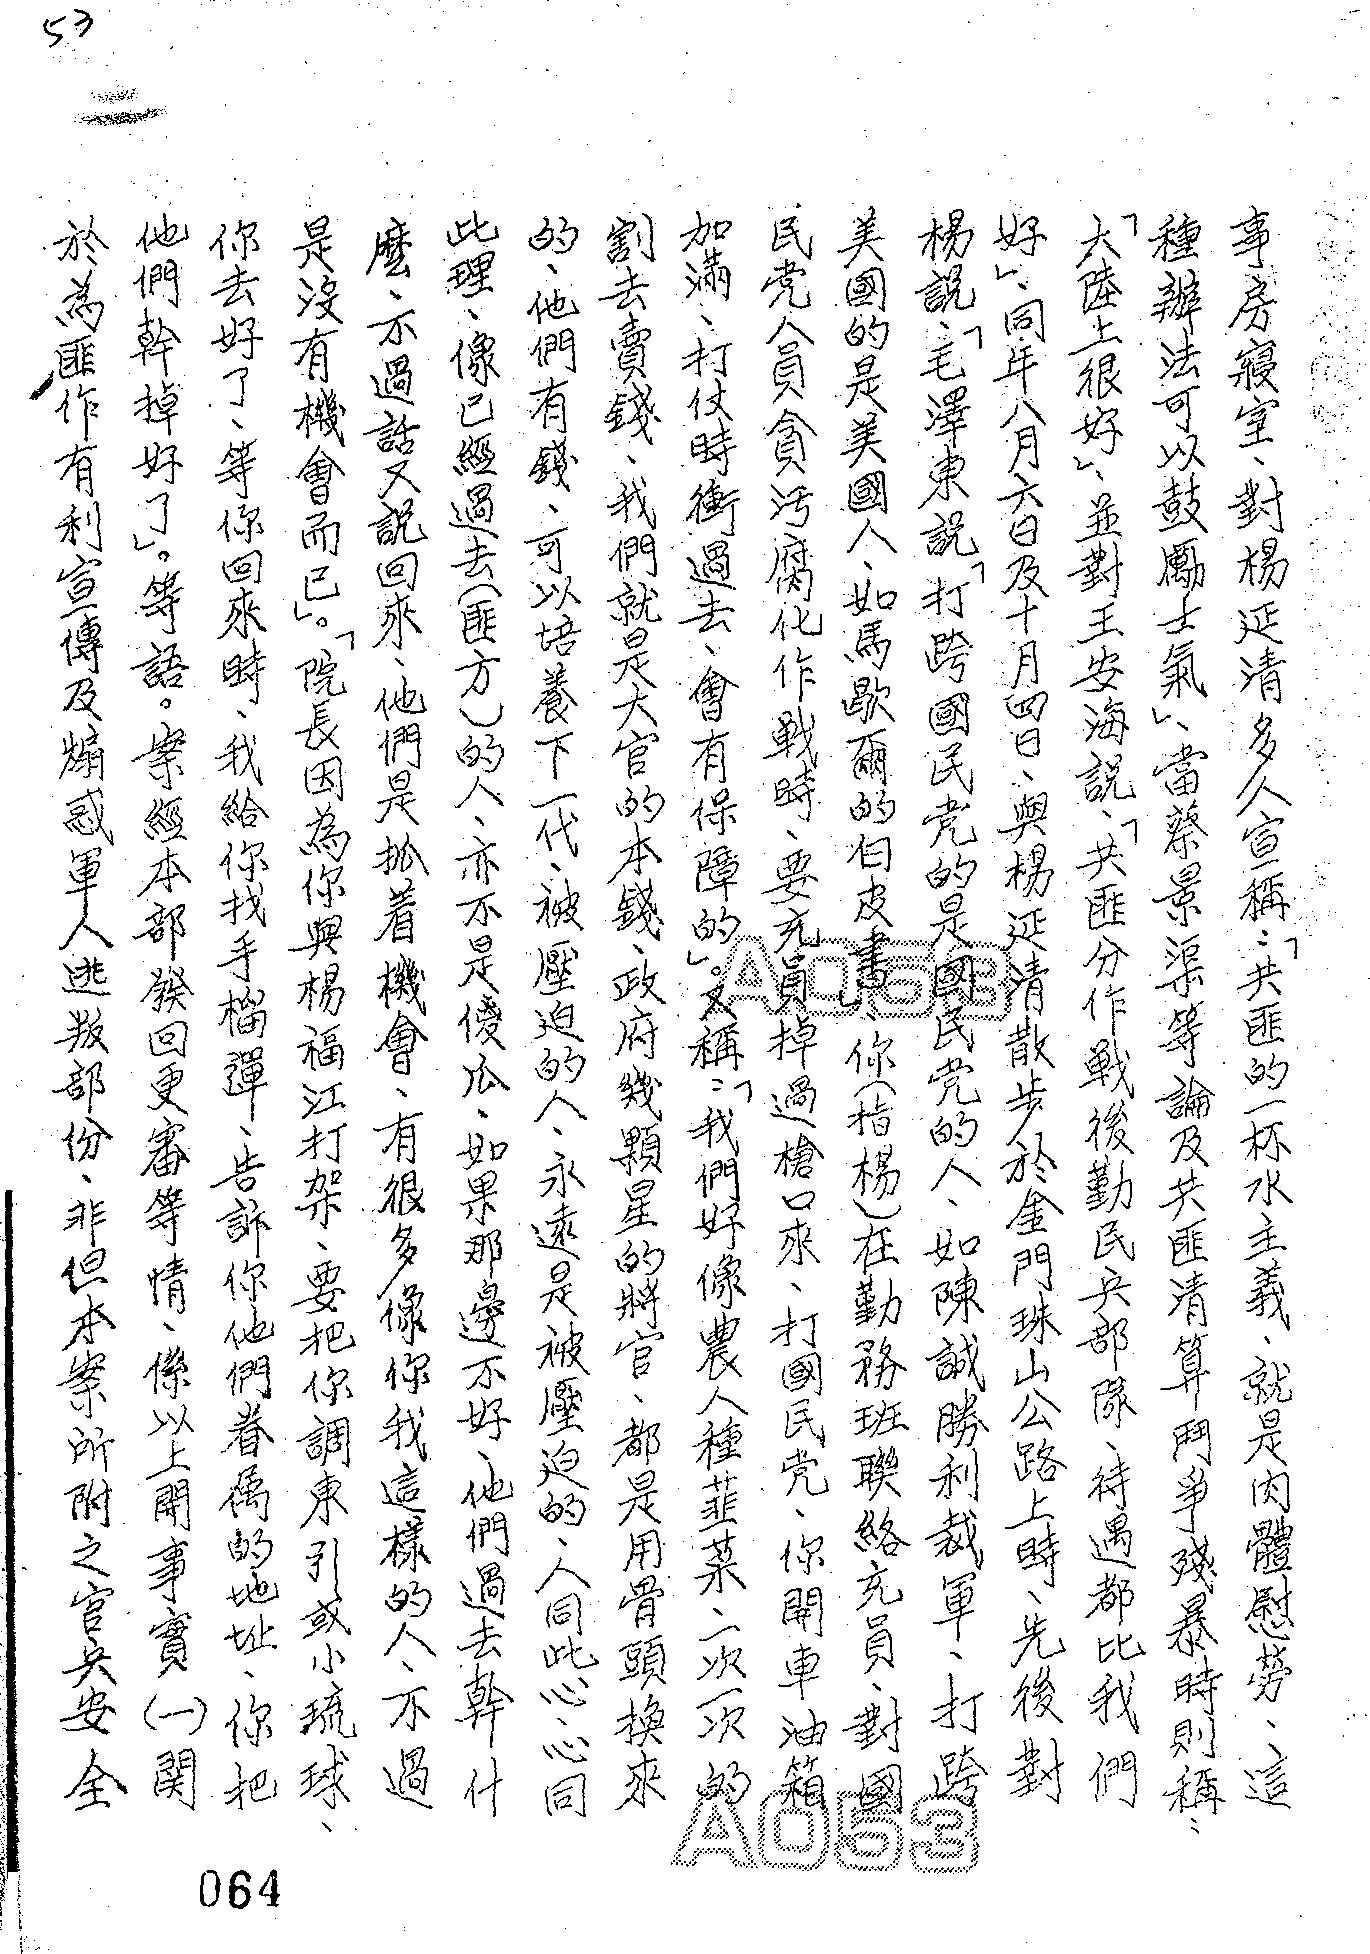 53
事房寢室、對楊延清多人宣稱：「共匪的一杯水主義、就是肉體慰勞、這
種辦法可以鼓勵士氣」、當蔡景渠等論及共匪清算鬥爭殘暴時則稱：
「大陸上很好」、並對王安海説、「共匪分作戰後勤民兵部隊、待遇都比我們
好」、同年八月六日及十月四日、與楊延清散步於金門珠山公路上時、先後對
楊説、「毛澤東説「打跨國民党的是國民党的人、如陳誠勝利裁軍、打跨
美國的是美國人、如馬歇爾的白皮書」、你(指楊)在勤務班聯絡充員、對國
民党人員貪汚腐化作戰時、要充員掉過槍口來、打國民党、你開車油箱
加滿、打仗時衝過去、會有保障的」。又稱：「我們好像農人種韮菜、一次一次的
割去賣錢、我們就是大官的本錢、政府幾顆星的將官、都是用骨頭換來
的、他們有錢、可以培養下一代、被壓迫的人、永遠是被壓迫的、人同此心、心同
此理、像已經過去(匪方)的人、亦不是傻瓜、如果那邊不好、他們過去幹什
麼、不過話又説回來、他們是抓着機會、有很多像你我這樣的人、不過
是沒有機會而已」。「院長因為你與楊福江打架、要把你調東引或小琉球、
你去好了、等你回來時、我給你找手榴彈、告訴你他們眷屬的地址、你把
他們幹掉好了」。等語。案經本部發回更審等情、係以上開事實(一)関
於為匪作有利宣傳及煽惑軍人逃叛部份、非但本案所附之官兵安全
A053
A053
064